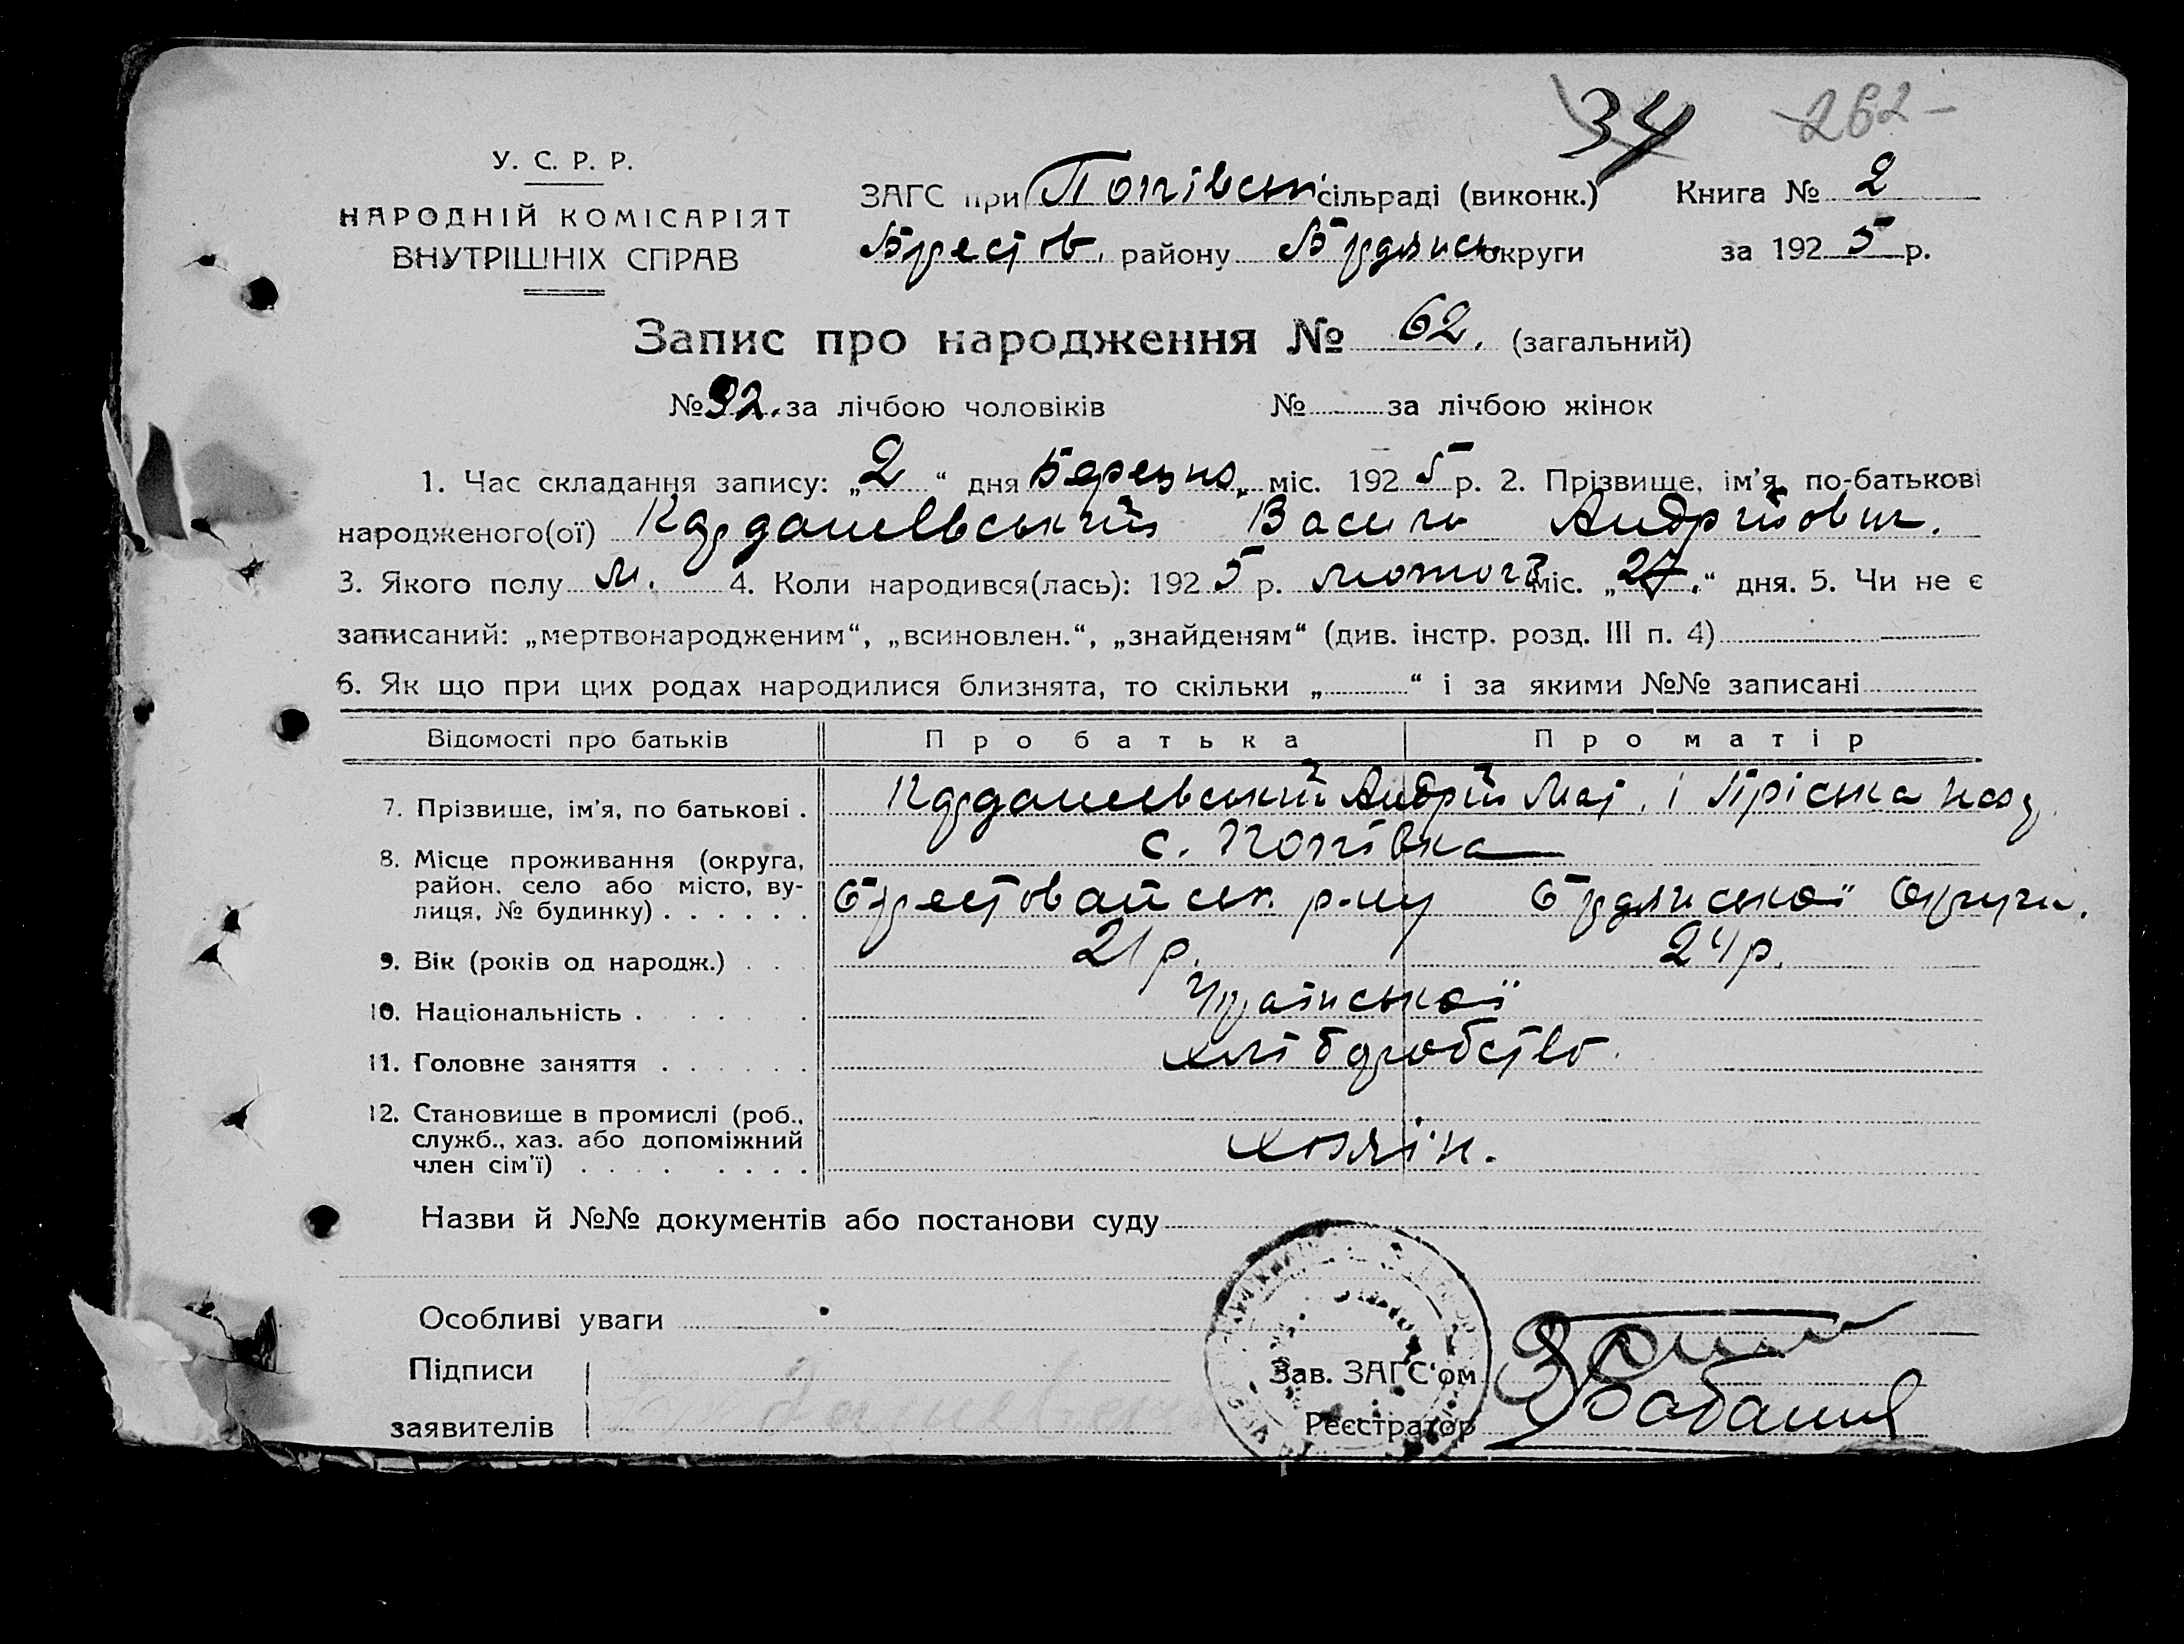 34 262
У. С. Р. Р.
НАРОДНІЙ КОМІСАРІЯТ
ВНУТРІШНІХ СПРАВ
ЗАГС при Попівськ сільраді (виконк.) Книга № 2
Берестов. району Бердянськ округи за 1925 р.
Запис про народження № 62. (загальний)
№ 32. за лічбою чоловіків № за лічбою жінок
1. Час складання запису: „2“ дня Березня міс. 1925 р. 2. Прізвище, ім'я, по-батькові
народженого(ої) Кардашевський Василь Андрійович.
3. Якого полу м. 4. Коли народився(лась): 1925 р. лютого міс. „27.“ дня. 5. Чи не є
записаний: „мертвонародженим“, „всиновлен.“, „знайденям“ (див. інстр. розд. III п. 4)
6. Як що при цих родах народилися близнята, то скільки „ “ і за якими №№ записані
Відомості про батьків Про батька Про матір
7. Прізвище, ім'я, по батькові . Кардашевський Андрій Мат. і Пріська
8. Місце проживання (округа, с. Попівка
район, село або місто, ву-
лиця, № будинку) . . . . . . Берестовайськ. р-ну Бердянської Округи.
9. Вік (років од народж.) . . . 21 р. 24 р.
10. Національність . . . . . . Української
11. Головне заняття . . . . . . хліборобство.
12. Становище в промислі (роб.,
служб., хаз. або допоміжний
член сім'ї) . . . . . . . . хозяїн.
Назви й №№ документів або постанови суду
Особливі уваги
Підписи
заявителів
Зав. ЗАГС'ом
Реєстратор